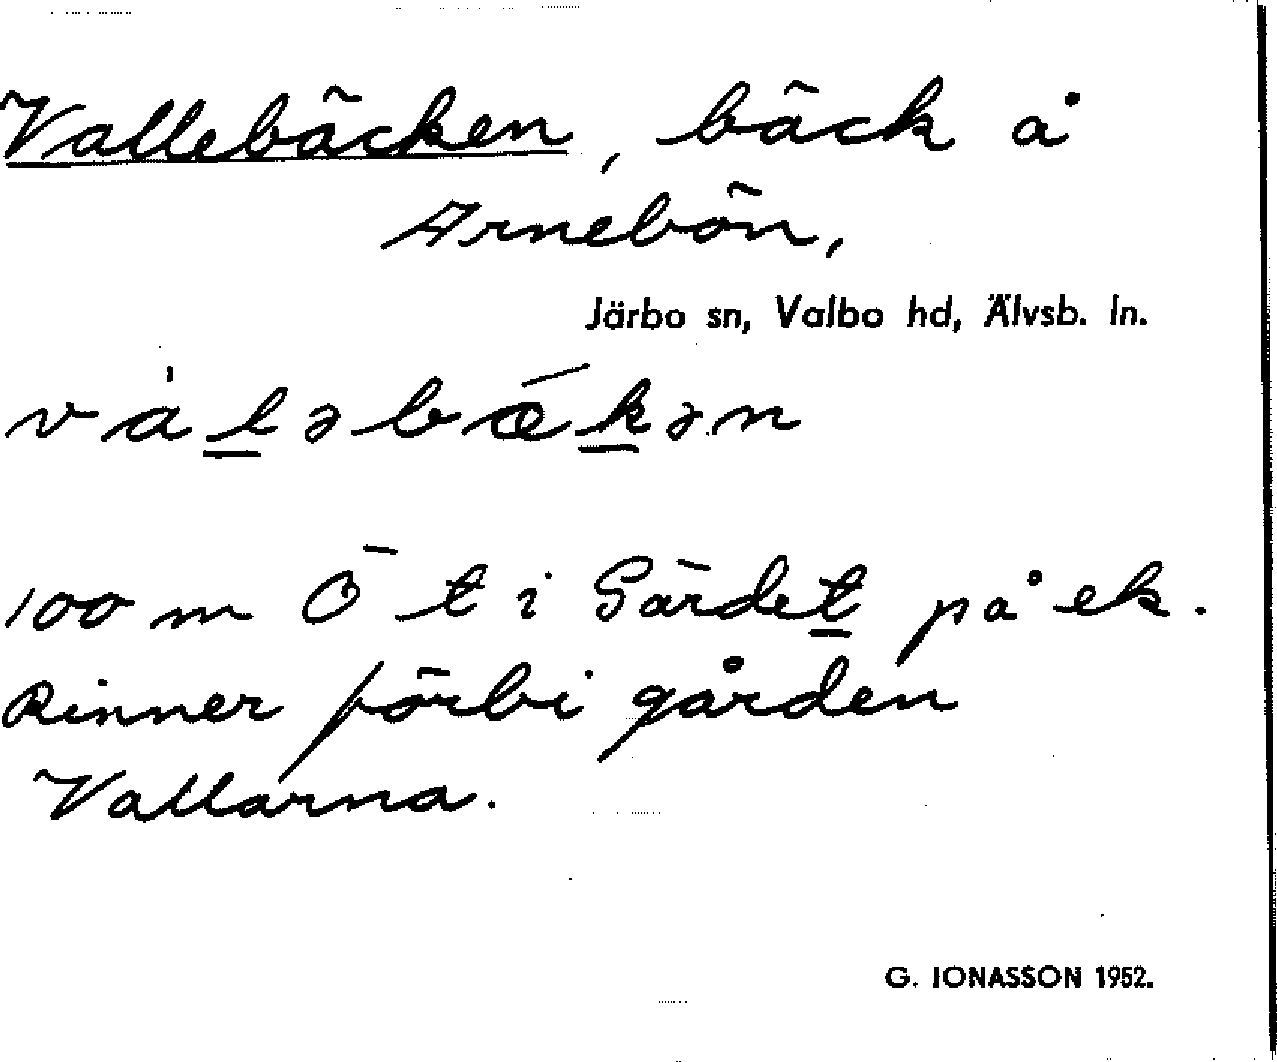 Vallebäcken, bäck å
Arnebön,
Järbo sn, Valbo hd, Älvsb. ln.
vàləbækən
100 m Ö t i Gärdet på ek.
Rinner förbi gården
Vallarna.
G. IONASSON 1952.